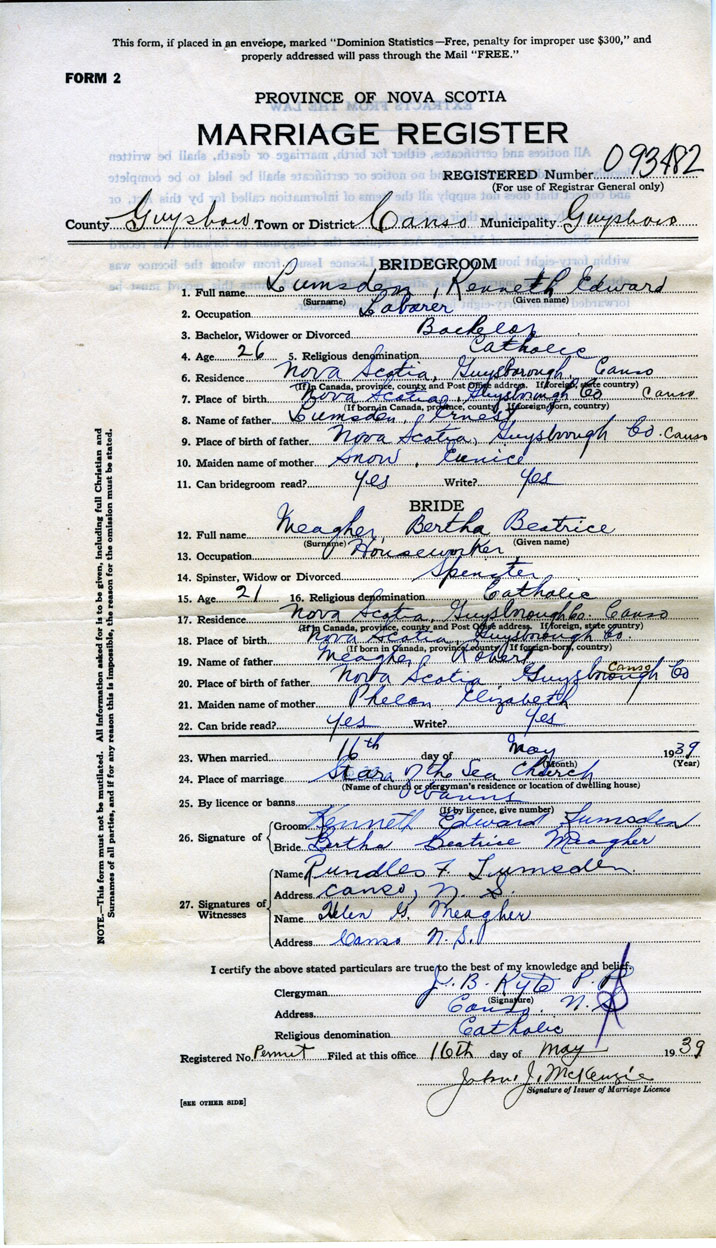 This form, if placed in an envelope, marked "Dominion Statistics—Free, penalty for improper use $300," and
properly addressed will pass through the Mail "FREE."
FORM 2
PROVINCE OF NOVA SCOTIA
MARRIAGE REGISTER
REGISTERED Number 093482
(For use of Registrar General only)
County Guysboro Town or District Canso Municipality Guysboro
BRIDEGROOM
1. Full name Lumsden, Kenneth Edward
(Surname) (Given name)
2. Occupation Laborer
3. Bachelor, Widower or Divorced Bachelor
4. Age 26 5. Religious denomination Catholic
6. Residence Nova Scotia, Guysborough, Canso
(If in Canada, province, county and Post Office address. If foreign, state country)
7. Place of birth Nova Scotia, Guysborough Co Canso
(If born in Canada, province, county. If foreign-born, country)
8. Name of father Lumsden, Ernest
9. Place of birth of father Nova Scotia, Guysborough Co. Canso
10. Maiden name of mother Snow, Eunice
11. Can bridegroom read? Yes Write? Yes
BRIDE
12. Full name Meagher, Bertha Beatrice
(Surname) (Given name)
13. Occupation Houseworker
14. Spinster, Widow or Divorced Spinster
15. Age 21 16. Religious denomination Catholic
17. Residence Nova Scotia, Guysborough Co. Canso
(If in Canada, province, county and Post Office address. If foreign, state country)
18. Place of birth Nova Scotia, Guysborough Co.
(If born in Canada, province, county. If foreign-born, country)
19. Name of father Meagher, Robert
20. Place of birth of father Nova Scotia, Guysborough Co Canso
21. Maiden name of mother Phelan Elizabeth
22. Can bride read? Yes Write? Yes
23. When married 16th day of May 1939
(Month) (Year)
24. Place of marriage Star of the Sea Church
(Name of church or clergyman's residence or location of dwelling house)
25. By licence or banns banns
(If by licence, give number)
26. Signature of
Groom Kenneth Edward Lumsden
Bride Bertha Beatrice Meagher
27. Signatures of Witnesses
Name Rundles F. Lumsden.
Address Canso, N. S.
Name Helen G. Meagher
Address Canso N.S.
I certify the above stated particulars are true to the best of my knowledge and belief.
Clergyman J. B. Kyte P. P.
(Signature)
Address Canso, N. S.
Religious denomination Catholic
Registered No. Permit Filed at this office 16th day of May 1939
John J. McKenzie
Signature of Issuer of Marriage Licence
[SEE OTHER SIDE]
NOTE.—This form must not be mutilated. All information asked for is to be given, including full Christian and
Surnames of all parties, and if for any reason this is impossible, the reason for the omission must be stated.